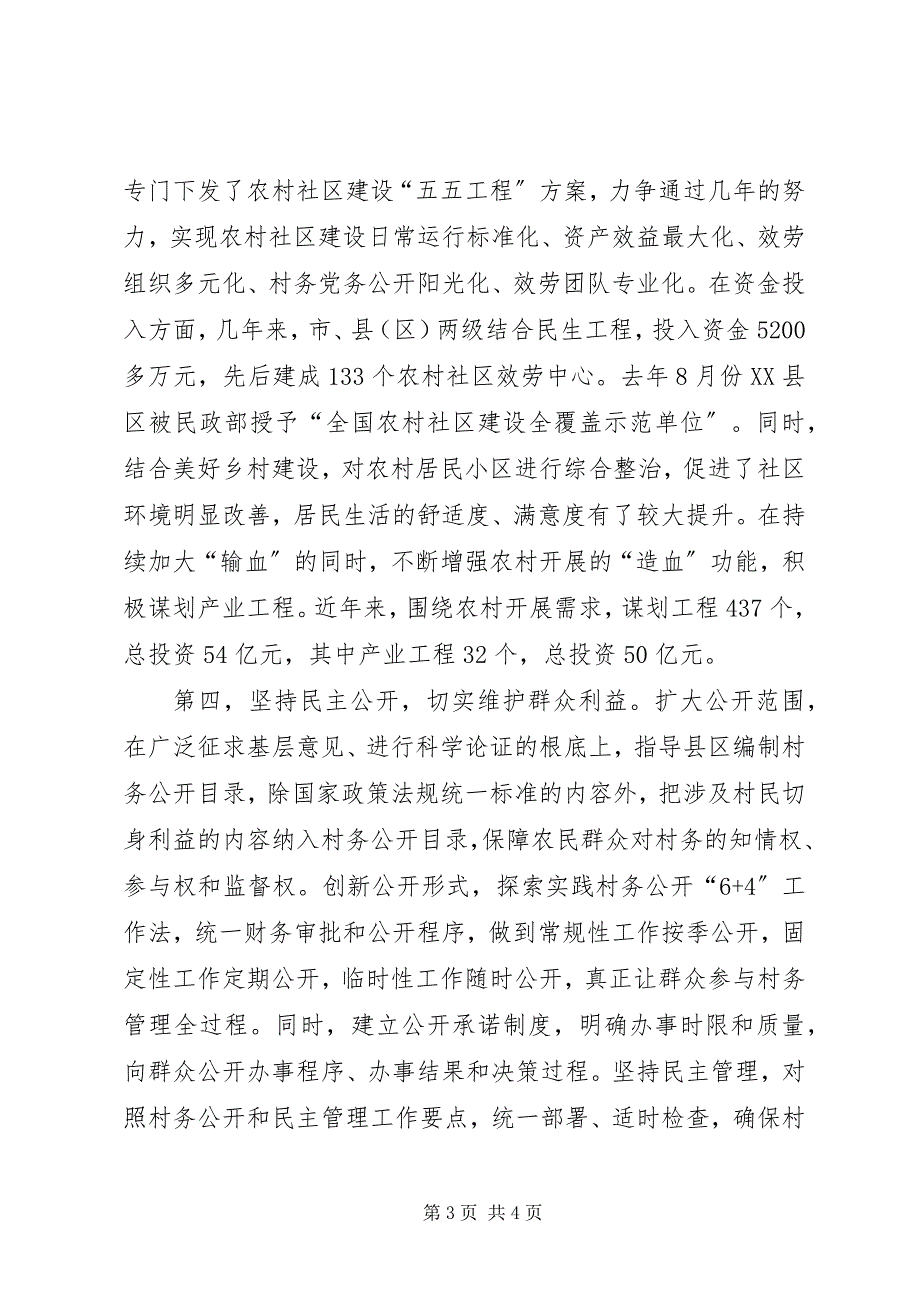 专门下发了农村社区建设“五五工程〞方案，力争通过几年的努
力，实现农村社区建设日常运行标准化、资产效益最大化、效劳
组织多元化、村务党务公开阳光化、效劳团队专业化。在资金投
入方面，几年来，市、县（区）两级结合民生工程，投入资金 5200
多万元，先后建成 133 个农村社区效劳中心。去年 8 月份 XX 县
区被民政部授予“全国农村社区建设全覆盖示范单位〞。同时，
结合美好乡村建设，对农村居民小区进行综合整治，促进了社区
环境明显改善，居民生活的舒适度、满意度有了较大提升。在持
续加大“输血〞的同时，不断增强农村开展的“造血〞功能，积
极谋划产业工程。近年来，围绕农村开展需求，谋划工程 437 个，
总投资 54 亿元，其中产业工程 32 个，总投资 50 亿元。
第四，坚持民主公开，切实维护群众利益。扩大公开范围，
在广泛征求基层意见、进行科学论证的根底上，指导县区编制村
务公开目录，除国家政策法规统一标准的内容外，把涉及村民切
身利益的内容纳入村务公开目录，保障农民群众对村务的知情权、
参与权和监督权。创新公开形式，探索实践村务公开“6+4〞工
作法，统一财务审批和公开程序，做到常规性工作按季公开，固
定性工作定期公开，临时性工作随时公开，真正让群众参与村务
管理全过程。同时，建立公开承诺制度，明确办事时限和质量，
向群众公开办事程序、办事结果和决策过程。坚持民主管理，对
照村务公开和民主管理工作要点，统一部署、适时检查，确保村
第 3 页 共 4 页